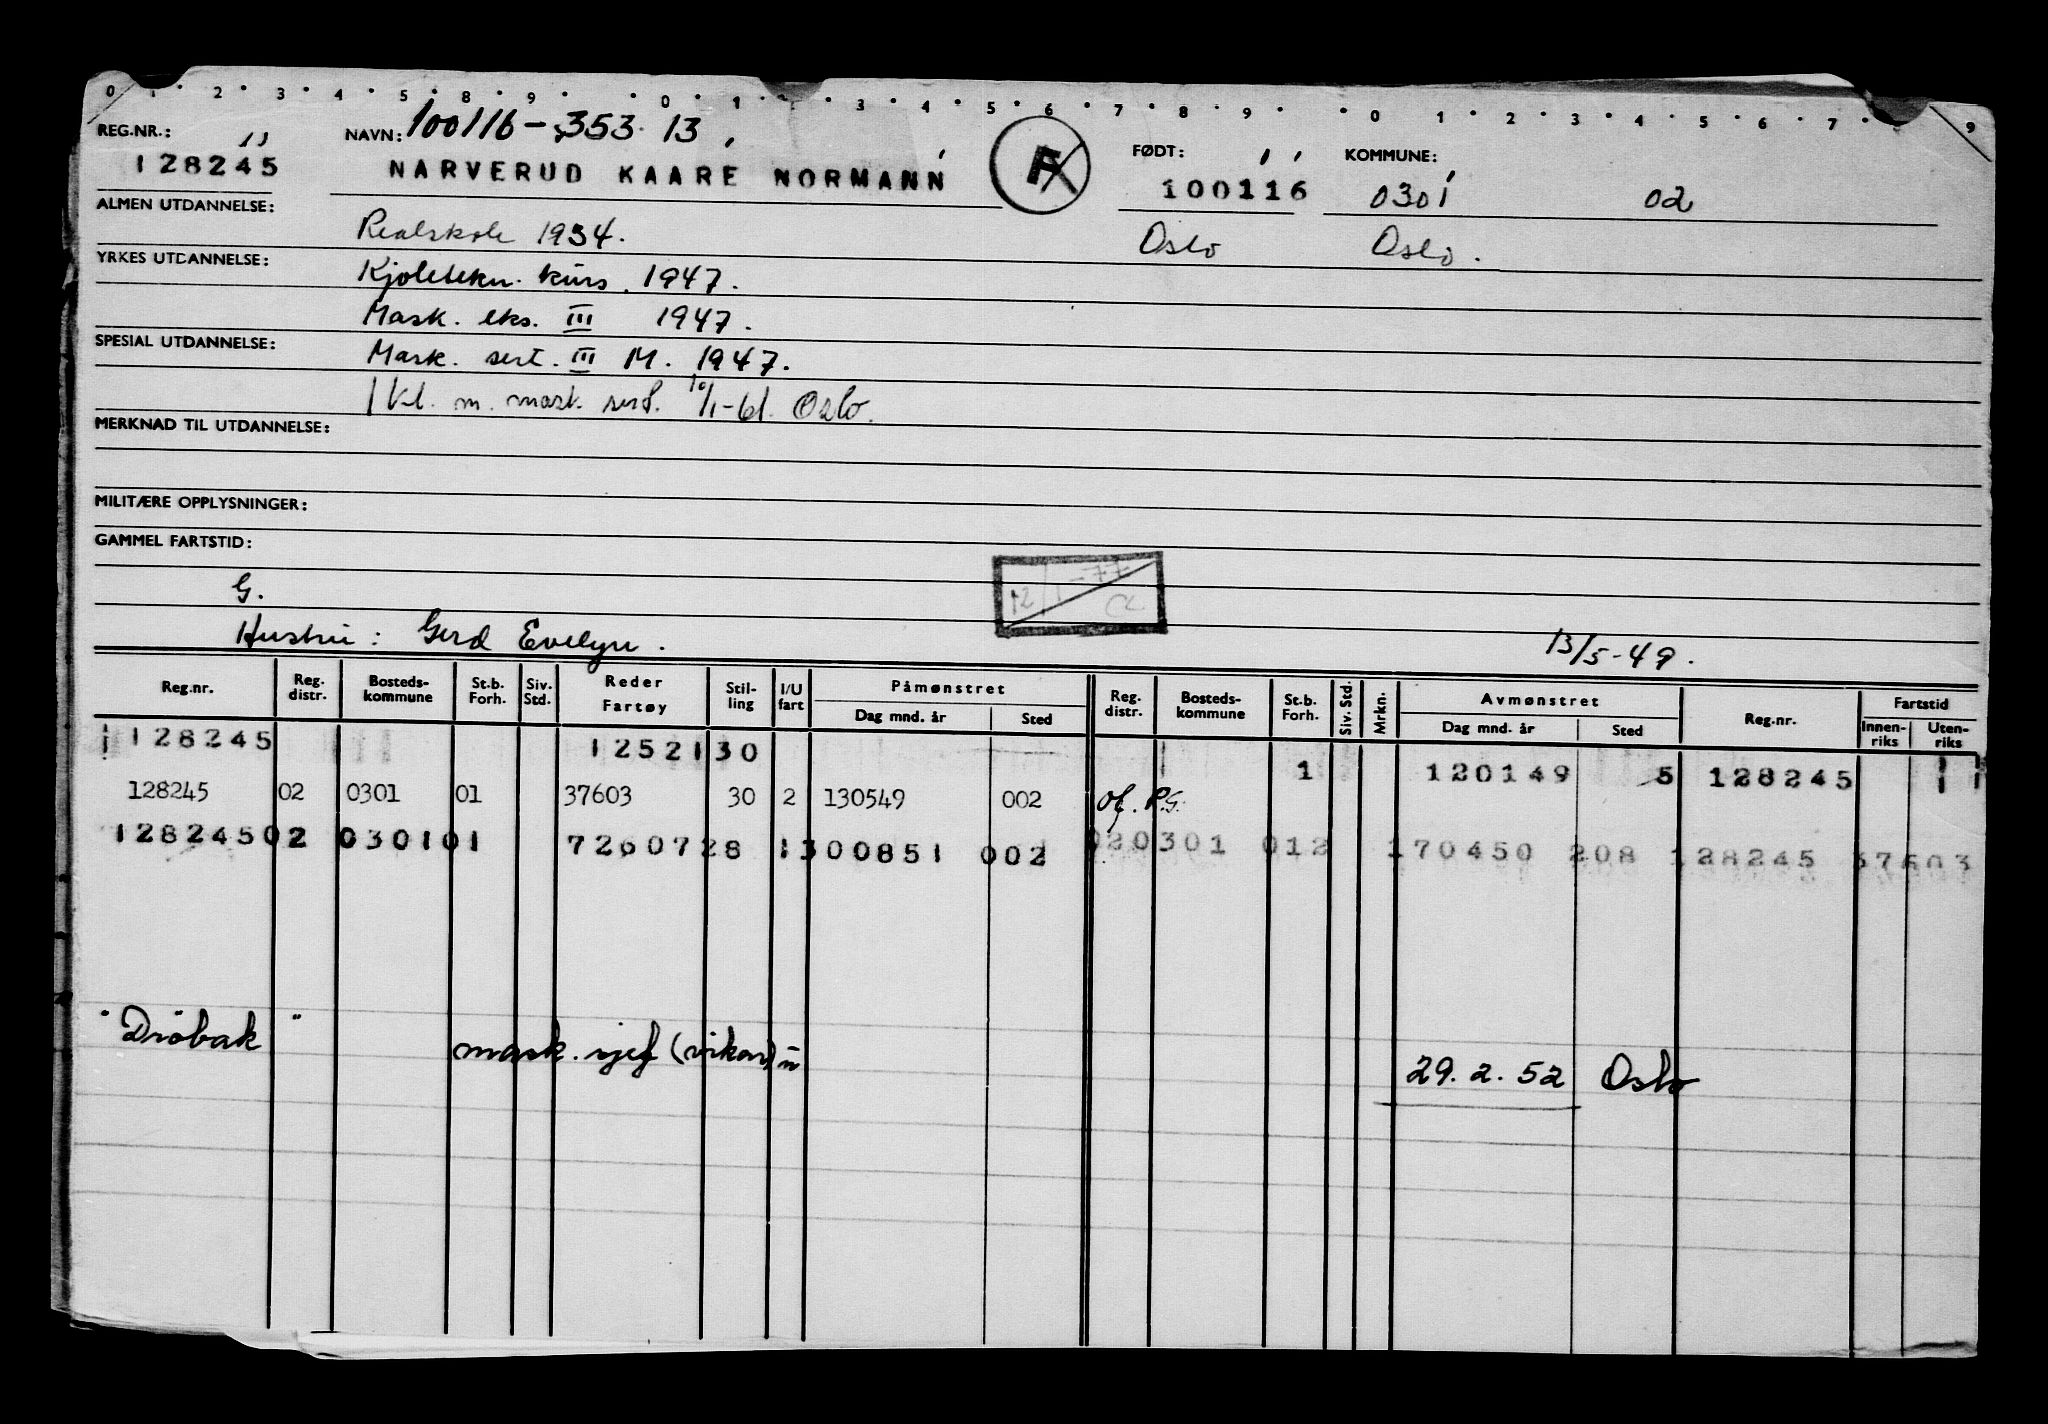 0 1 2 3 4 5 8 9 0 1 3 4 5 6 7 8 9 0 1 2 3 4 5 6 7 9
REG.NR.: NAVN: 100116-35313 FØDT: KOMMUNE:
128245 NARVERUD KAARE NORMANN F 100116 0301 02
ALMEN UTDANNELSE: Realskole 1934. Oslo Oslo.
YRKES UTDANNELSE: Kjøletekn. kurs. 1947.
Mask. eks. III 1947.
SPESIAL UTDANNELSE: Mask. sert. III M. 1947.
1 kl. m. mask. sert. 10/1-61. Oslo.
MERKNAD TIL UTDANNELSE:
MILITÆRE OPPLYSNINGER:
GAMMEL FARTSTID:
12/1-77
G.
Hustru: Gerd Evelyn. 13/5-49.
Reg.nr. Reg. distr. Bosteds-kommune St.b. Forh. Siv. Std. Reder Fartøy Stil-ling I/U fart Påmønstret Dag mnd. år Sted Reg. distr. Bosteds-kommune St.b. Forh. Siv. Std. Mrkn. Avmønstret Dag mnd. år Sted Reg.nr. Fartstid Innen-riks Uten-riks
128245 1252130 1 120149 5 128245
128245 02 0301 01 37603 30 2 130549 002 of. P.G.
12824502 030101 7260728 1300851 002 020301 012 170450 208 128245 37603
"Drøbak" mask. sjef (vikar) u 29.2.52 Oslo